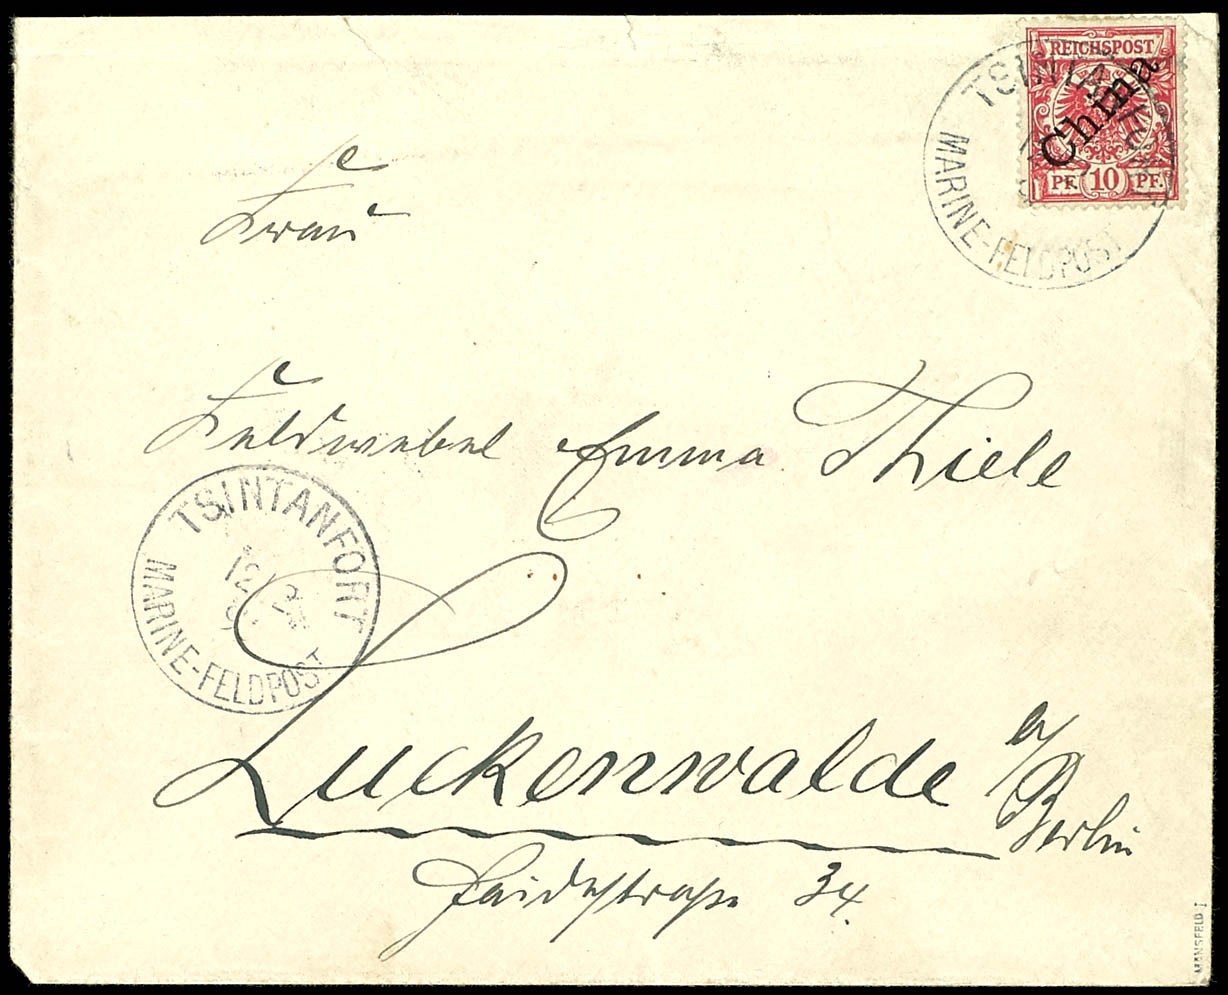 REICHSPOST
China
PF. 10 PF.
TSINTANFORT
MARINE-FELDPOST
Frau
Feldwebel Emma Thiele
TSINTANFORT
12
MARINE-FELDPOST
Luckenwalde a/Berlin
Haidestraße 34.
MANSFELD I